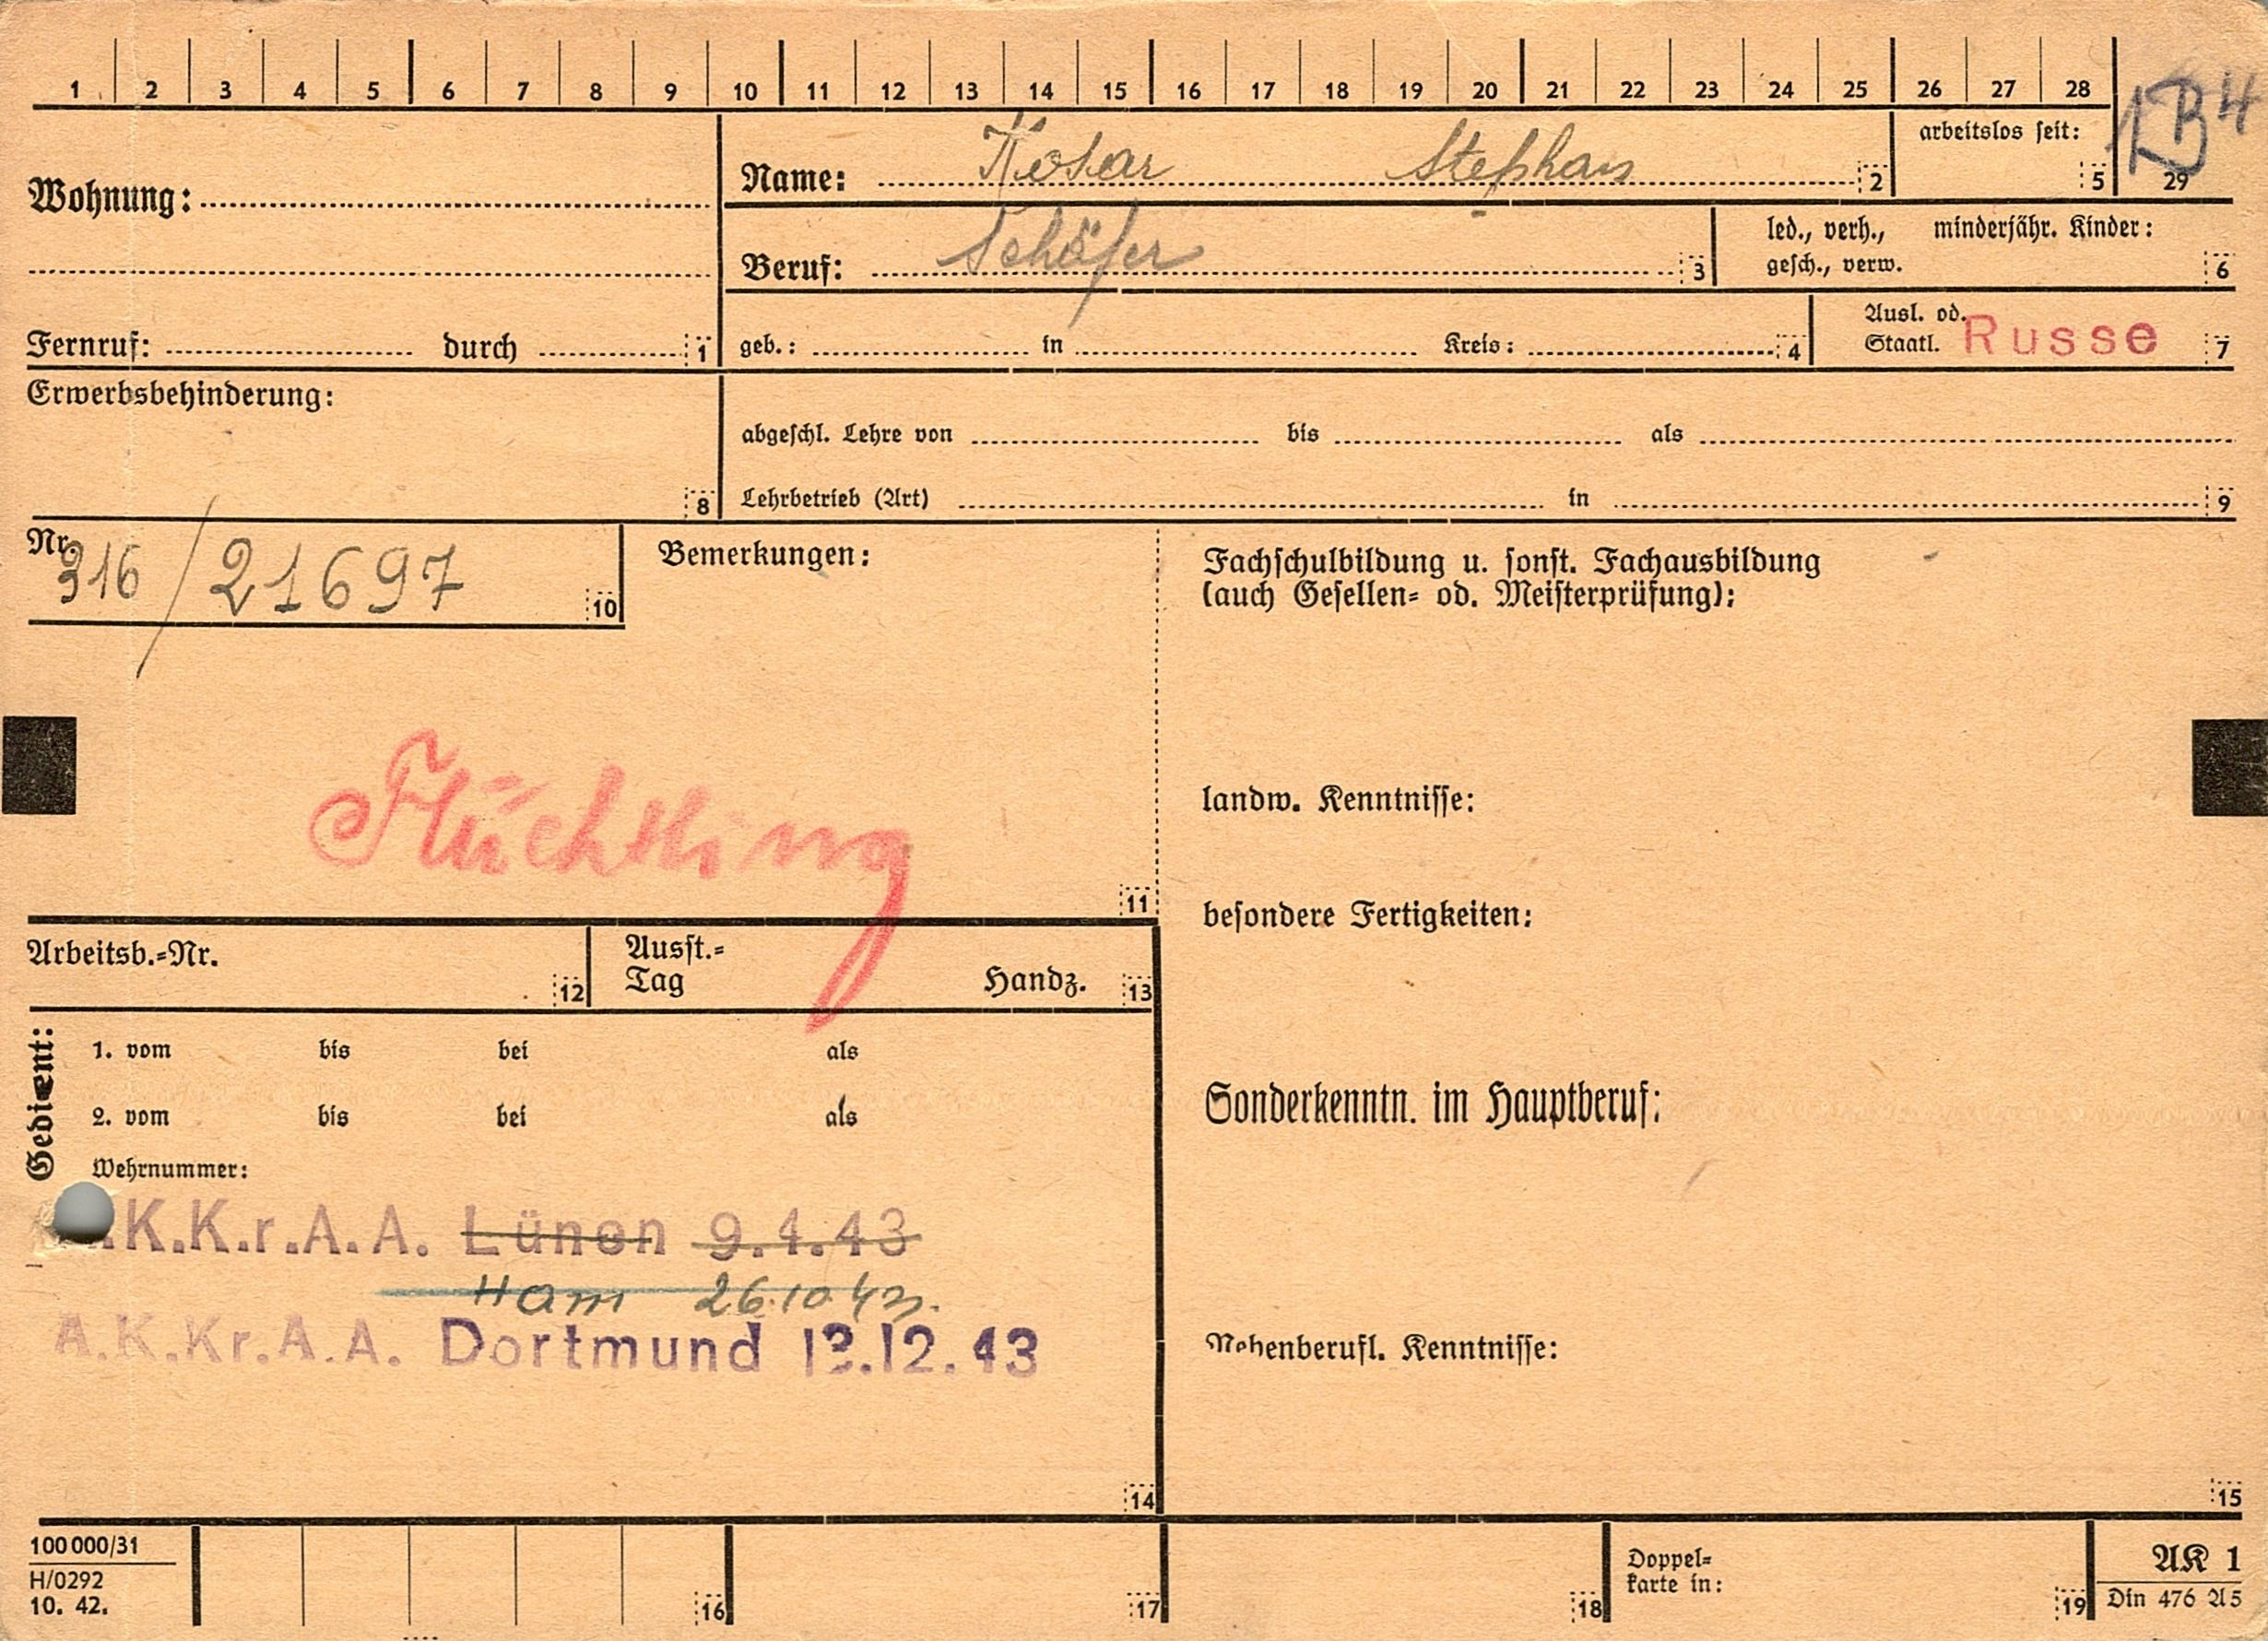 1 2 3 4 5 6 7 8 9 10 11 12 13 14 15 16 17 18 19 20 21 22 23 24 25 26 27 28
29
Wohnung:
Name: Kosar Stephan 2
arbeitslos seit: 5
Beruf: Schäfer 3
led., verh., minderjähr. Kinder:
gesch., verw. 6
Fernruf: durch 1
geb.: in Kreis: 4
Ausl. od.
Staatl. Russe 7
Erwerbsbehinderung: 8
abgeschl. Lehre von bis als
Lehrbetrieb (Art) in 9
Nr. 316/21697 10
Bemerkungen:
Flüchtling
11
Fachschulbildung u. sonst. Fachausbildung
(auch Gesellen- od. Meisterprüfung):
landw. Kenntnisse:
besondere Fertigkeiten:
Arbeitsb.-Nr. 12
Ausst.-
Tag Handz. 13
Gedient:
1. vom bis bei als
2. vom bis bei als
Wehrnummer:
Sonderkenntn. im Hauptberuf:
.K.K.r.A.A. Lünen 9.4.43
Ham 26.10.43.
A.K.Kr.A.A. Dortmund 13.12.43
14
Nebenberufl. Kenntnisse:
15
100 000/31
H/0292
10. 42.
16
17
18
Doppel-
karte in: 19
AK 1
Din 476 A5